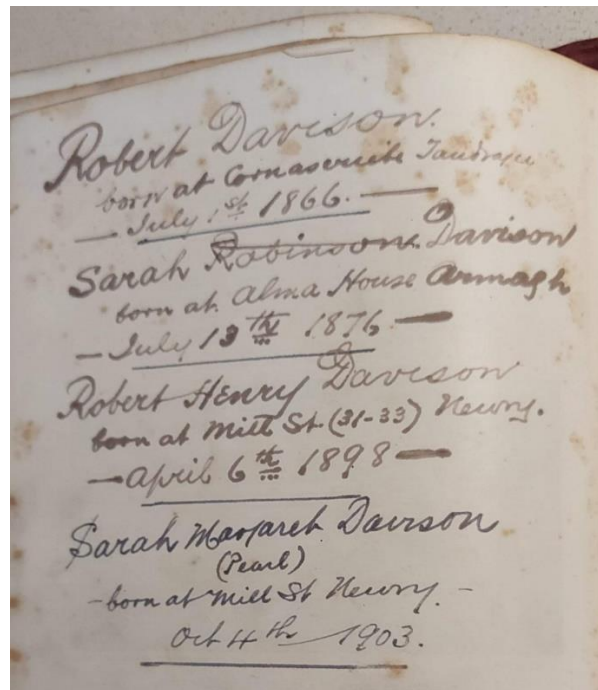 Robert Davison.
born at Cornascriebe Tandragee
— July 1st 1866. —
Sarah Robinson Davison
born at Alma House Armagh
— July 13th 1876. —
Robert Henry Davison
born at Mill St. (31-33) Newry.
— April 6th 1898 —
Sarah Margaret Davison
(Pearl)
- born at Mill St Newry. -
Oct 4th 1903.